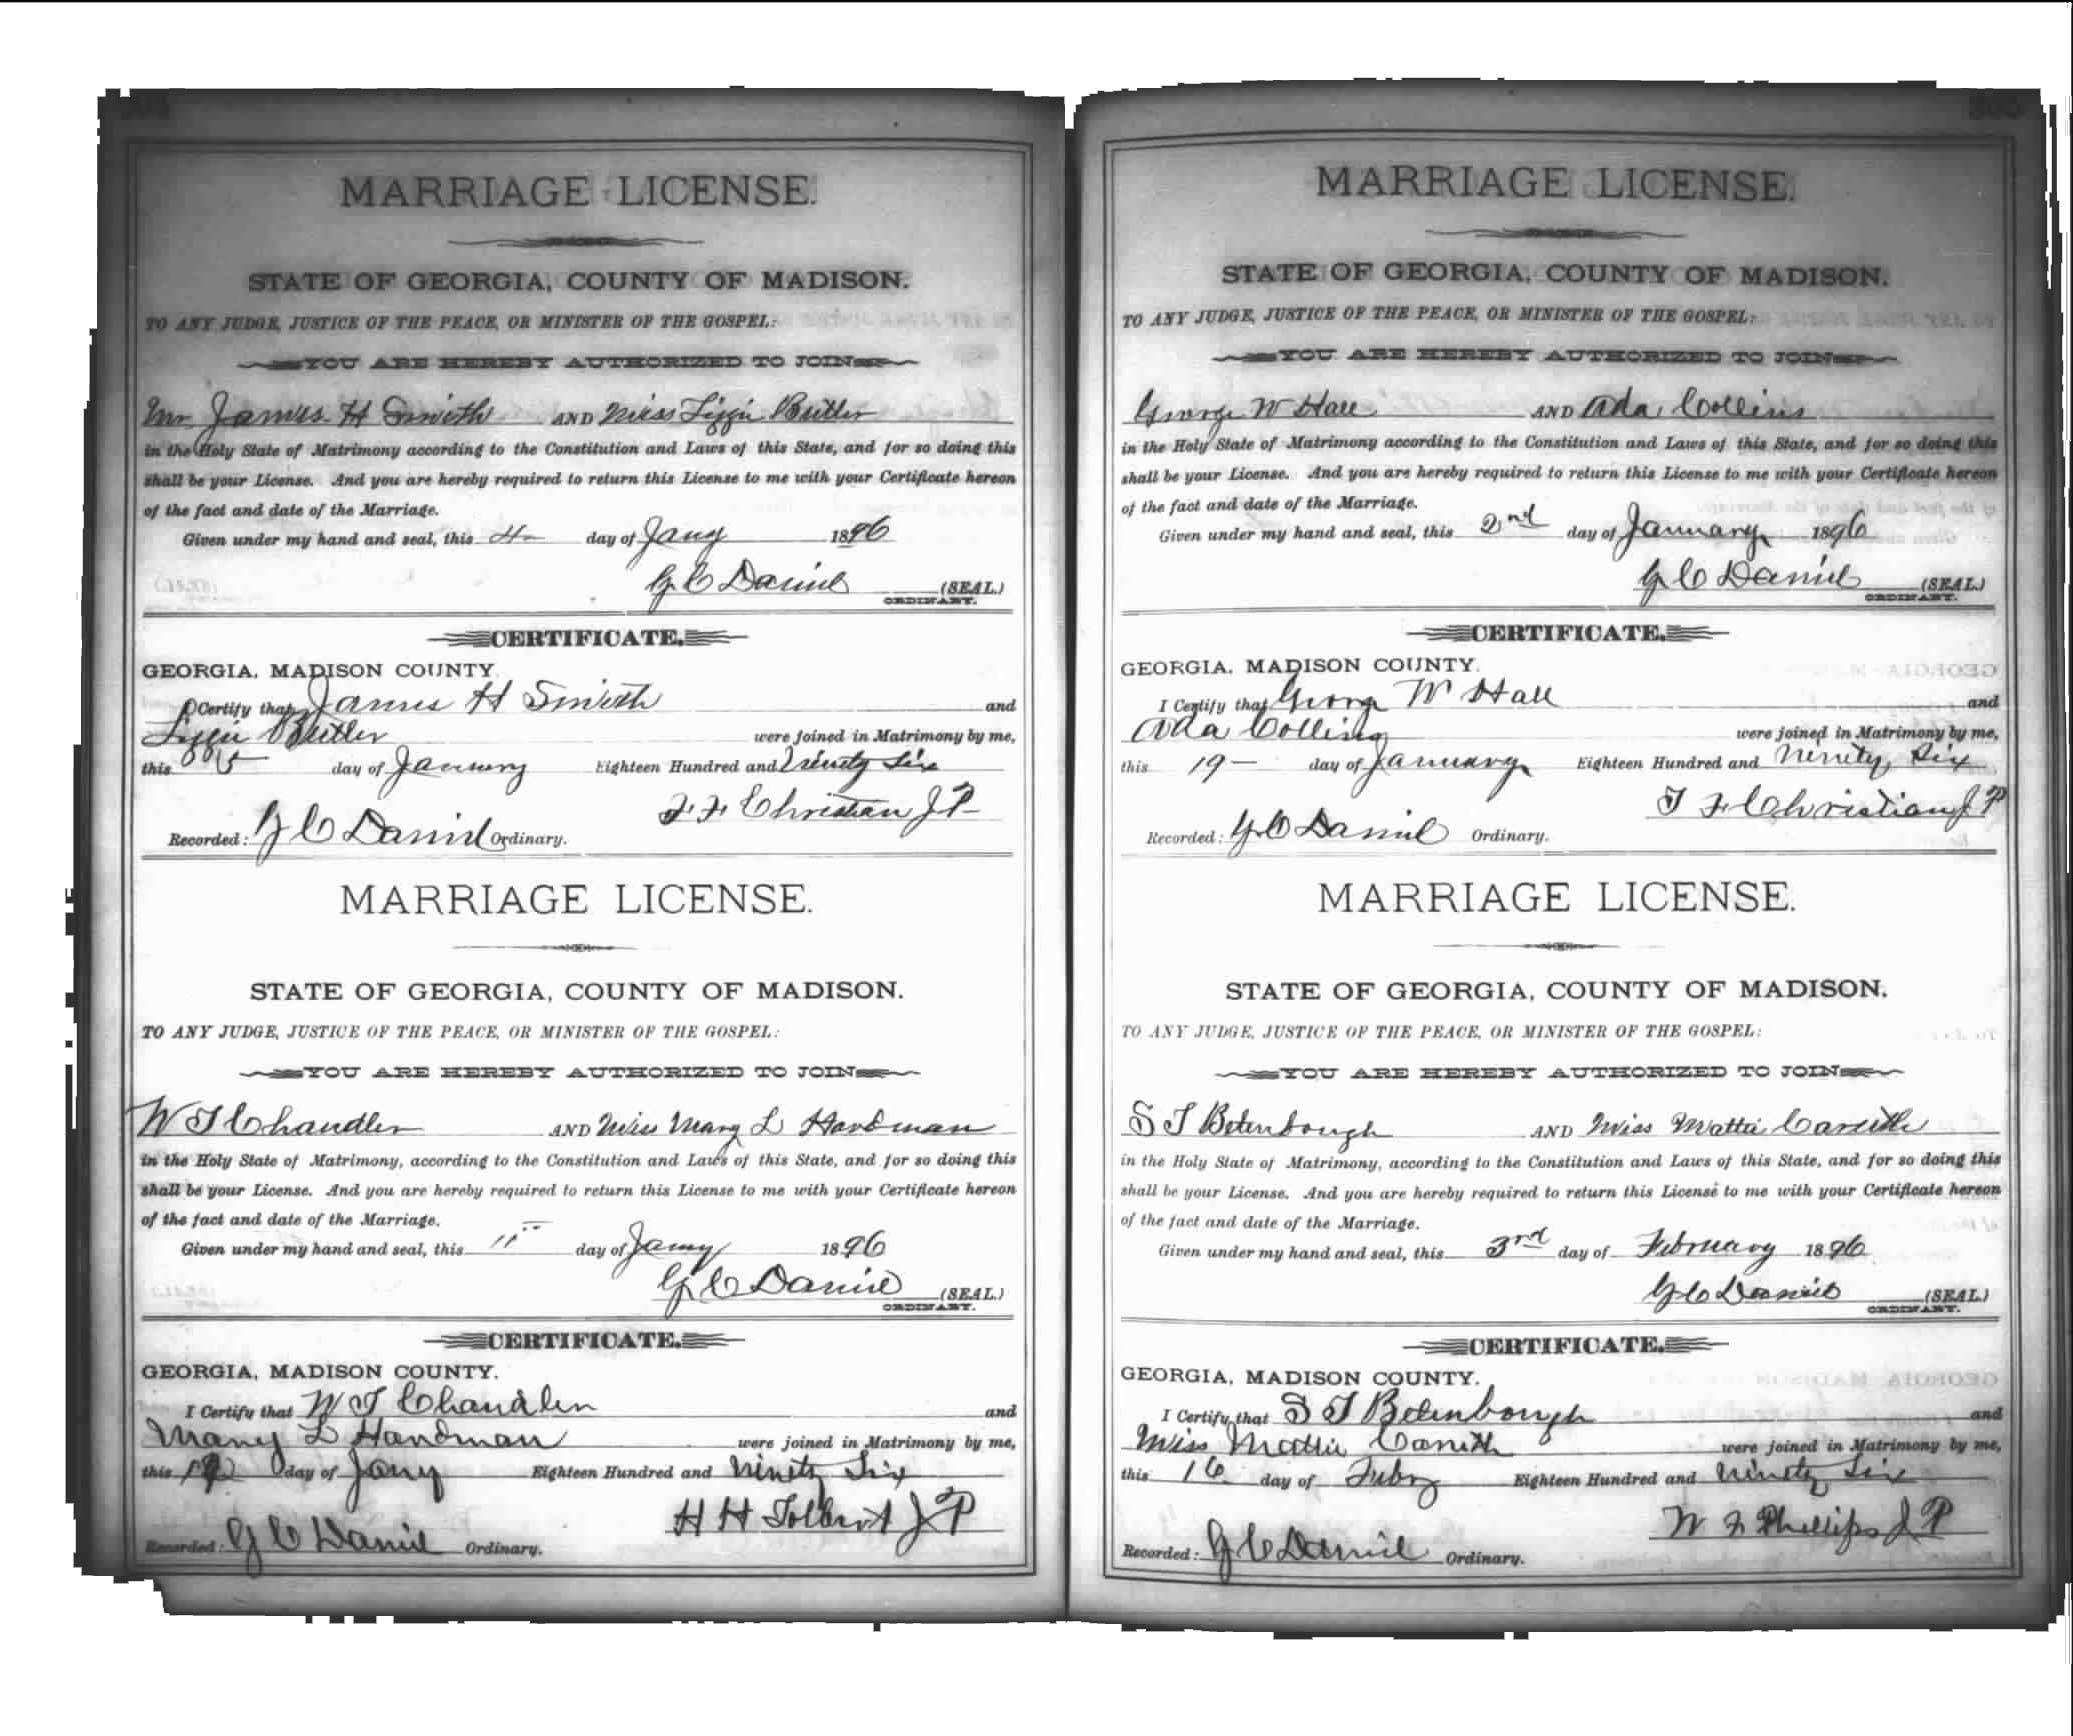 MARRIAGE LICENSE.
STATE OF GEORGIA, COUNTY OF MADISON.
TO ANY JUDGE, JUSTICE OF THE PEACE, OR MINISTER OF THE GOSPEL:
YOU ARE HEREBY AUTHORIZED TO JOIN
Mr James H Smith AND Miss Lizzie Butler
in the Holy State of Matrimony according to the Constitution and Laws of this State, and for so doing this
shall be your License. And you are hereby required to return this License to me with your Certificate hereon
of the fact and date of the Marriage.
Given under my hand and seal, this 4 day of Jany 1896
G C Daniel (SEAL.)
ORDINARY.
CERTIFICATE.
GEORGIA, MADISON COUNTY.
I Certify that James H Smith and
Lizzie Butler were joined in Matrimony by me,
this 5 day of January Eighteen Hundred and Ninety Six
F. F. Christian J P
Recorded: G C Daniel Ordinary.
MARRIAGE LICENSE.
STATE OF GEORGIA, COUNTY OF MADISON.
TO ANY JUDGE, JUSTICE OF THE PEACE, OR MINISTER OF THE GOSPEL:
YOU ARE HEREBY AUTHORIZED TO JOIN
W T Chandler AND Miss Mary L Hardman
in the Holy State of Matrimony, according to the Constitution and Laws of this State, and for so doing this
shall be your License. And you are hereby required to return this License to me with your Certificate hereon
of the fact and date of the Marriage.
Given under my hand and seal, this 11 day of Jany 1896
G C Daniel (SEAL.)
ORDINARY.
CERTIFICATE.
GEORGIA, MADISON COUNTY.
I Certify that W T Chandler and
Mary L Hardman were joined in Matrimony by me,
this day of Jany Eighteen Hundred and Ninety Six
H H Tolbert J P
Recorded: G C Daniel Ordinary.
MARRIAGE LICENSE.
STATE OF GEORGIA, COUNTY OF MADISON.
TO ANY JUDGE, JUSTICE OF THE PEACE, OR MINISTER OF THE GOSPEL:
YOU ARE HEREBY AUTHORIZED TO JOIN
George W Hall AND Ada Collins
in the Holy State of Matrimony according to the Constitution and Laws of this State, and for so doing this
shall be your License. And you are hereby required to return this License to me with your Certificate hereon
of the fact and date of the Marriage.
Given under my hand and seal, this 2nd day of January 1896
G C Daniel (SEAL.)
ORDINARY.
CERTIFICATE.
GEORGIA, MADISON COUNTY.
I Certify that George W Hall and
Ada Collins were joined in Matrimony by me,
this 19 day of January Eighteen Hundred and Ninety, Six
F F Christian J P
Recorded: G C Daniel Ordinary.
MARRIAGE LICENSE.
STATE OF GEORGIA, COUNTY OF MADISON.
TO ANY JUDGE, JUSTICE OF THE PEACE, OR MINISTER OF THE GOSPEL:
YOU ARE HEREBY AUTHORIZED TO JOIN
S T Betenbough AND Miss Mattie Carrith
in the Holy State of Matrimony, according to the Constitution and Laws of this State, and for so doing this
shall be your License. And you are hereby required to return this License to me with your Certificate hereon
of the fact and date of the Marriage.
Given under my hand and seal, this 3rd day of February 1896
G C Daniel (SEAL.)
ORDINARY.
CERTIFICATE.
GEORGIA, MADISON COUNTY.
I Certify that S T Betenbough and
Miss Mattie Carrith were joined in Matrimony by me,
this 16 day of Feby Eighteen Hundred and Ninety Six
W F Phillips J P
Recorded: G C Daniel Ordinary.